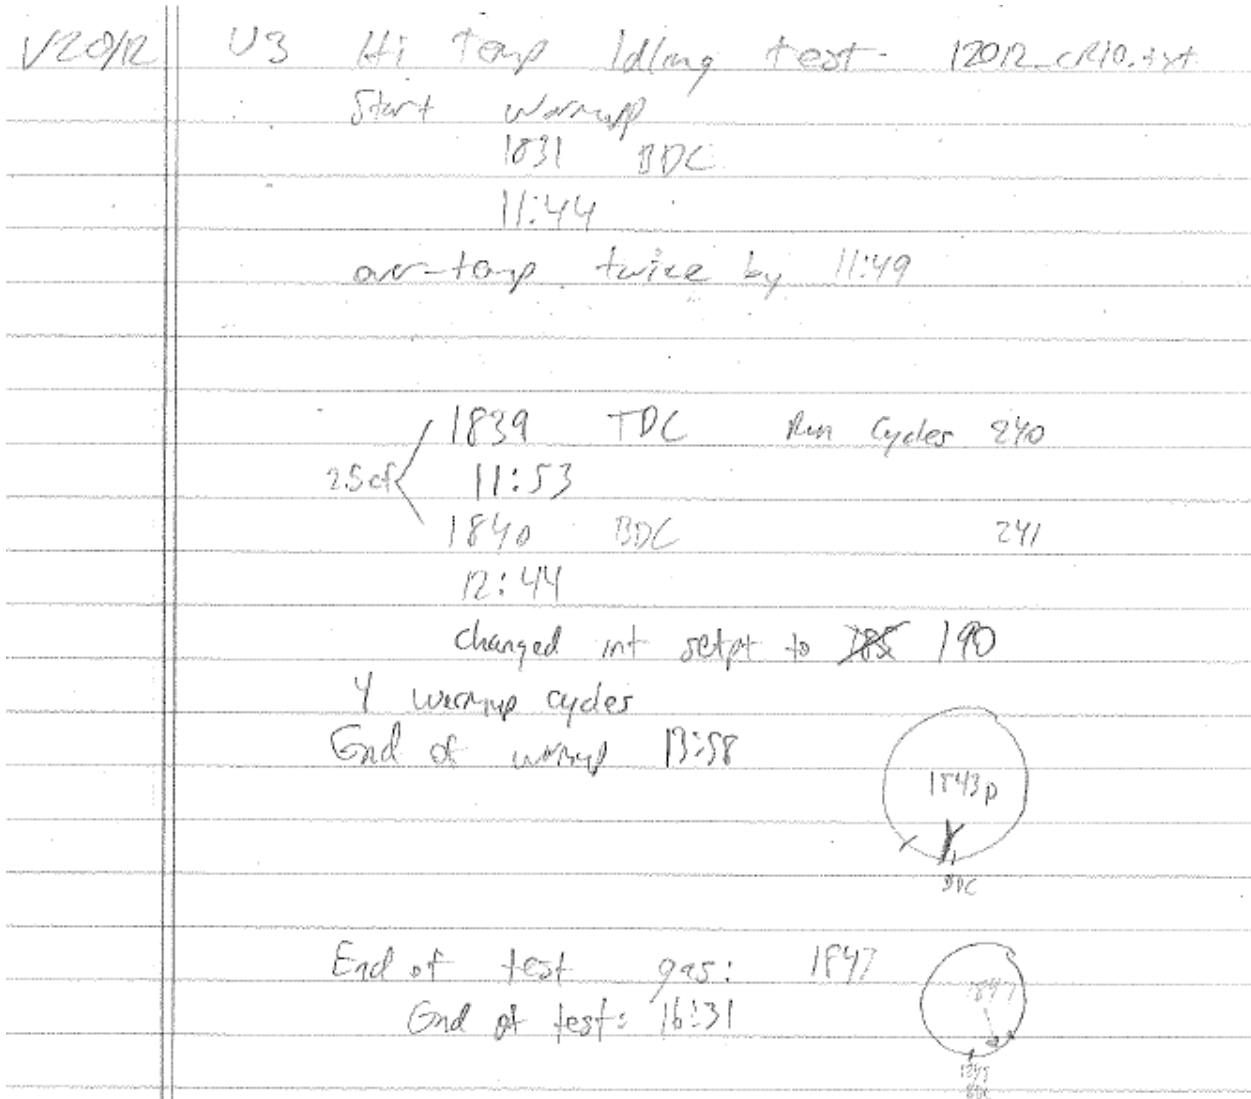 1/20/12 U3 Hi Temp Idling test - 12012_cRIO.txt
Start warmup
1831 BDC
11:44
over-temp twice by 11:49
1839 TDC Run Cycles 240
2.5cf 11:53
1840 BDC 241
12:44
changed int setpt to 190
4 warmup cycles
End of warmup 13:58
1843
BDC
End of test gas: 1847
End of test: 16:31
1847
BDC